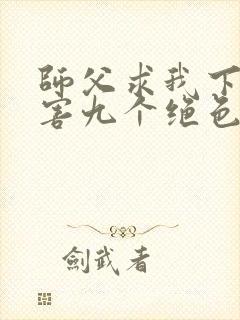 師父求我下
害九个绝色
劍武者